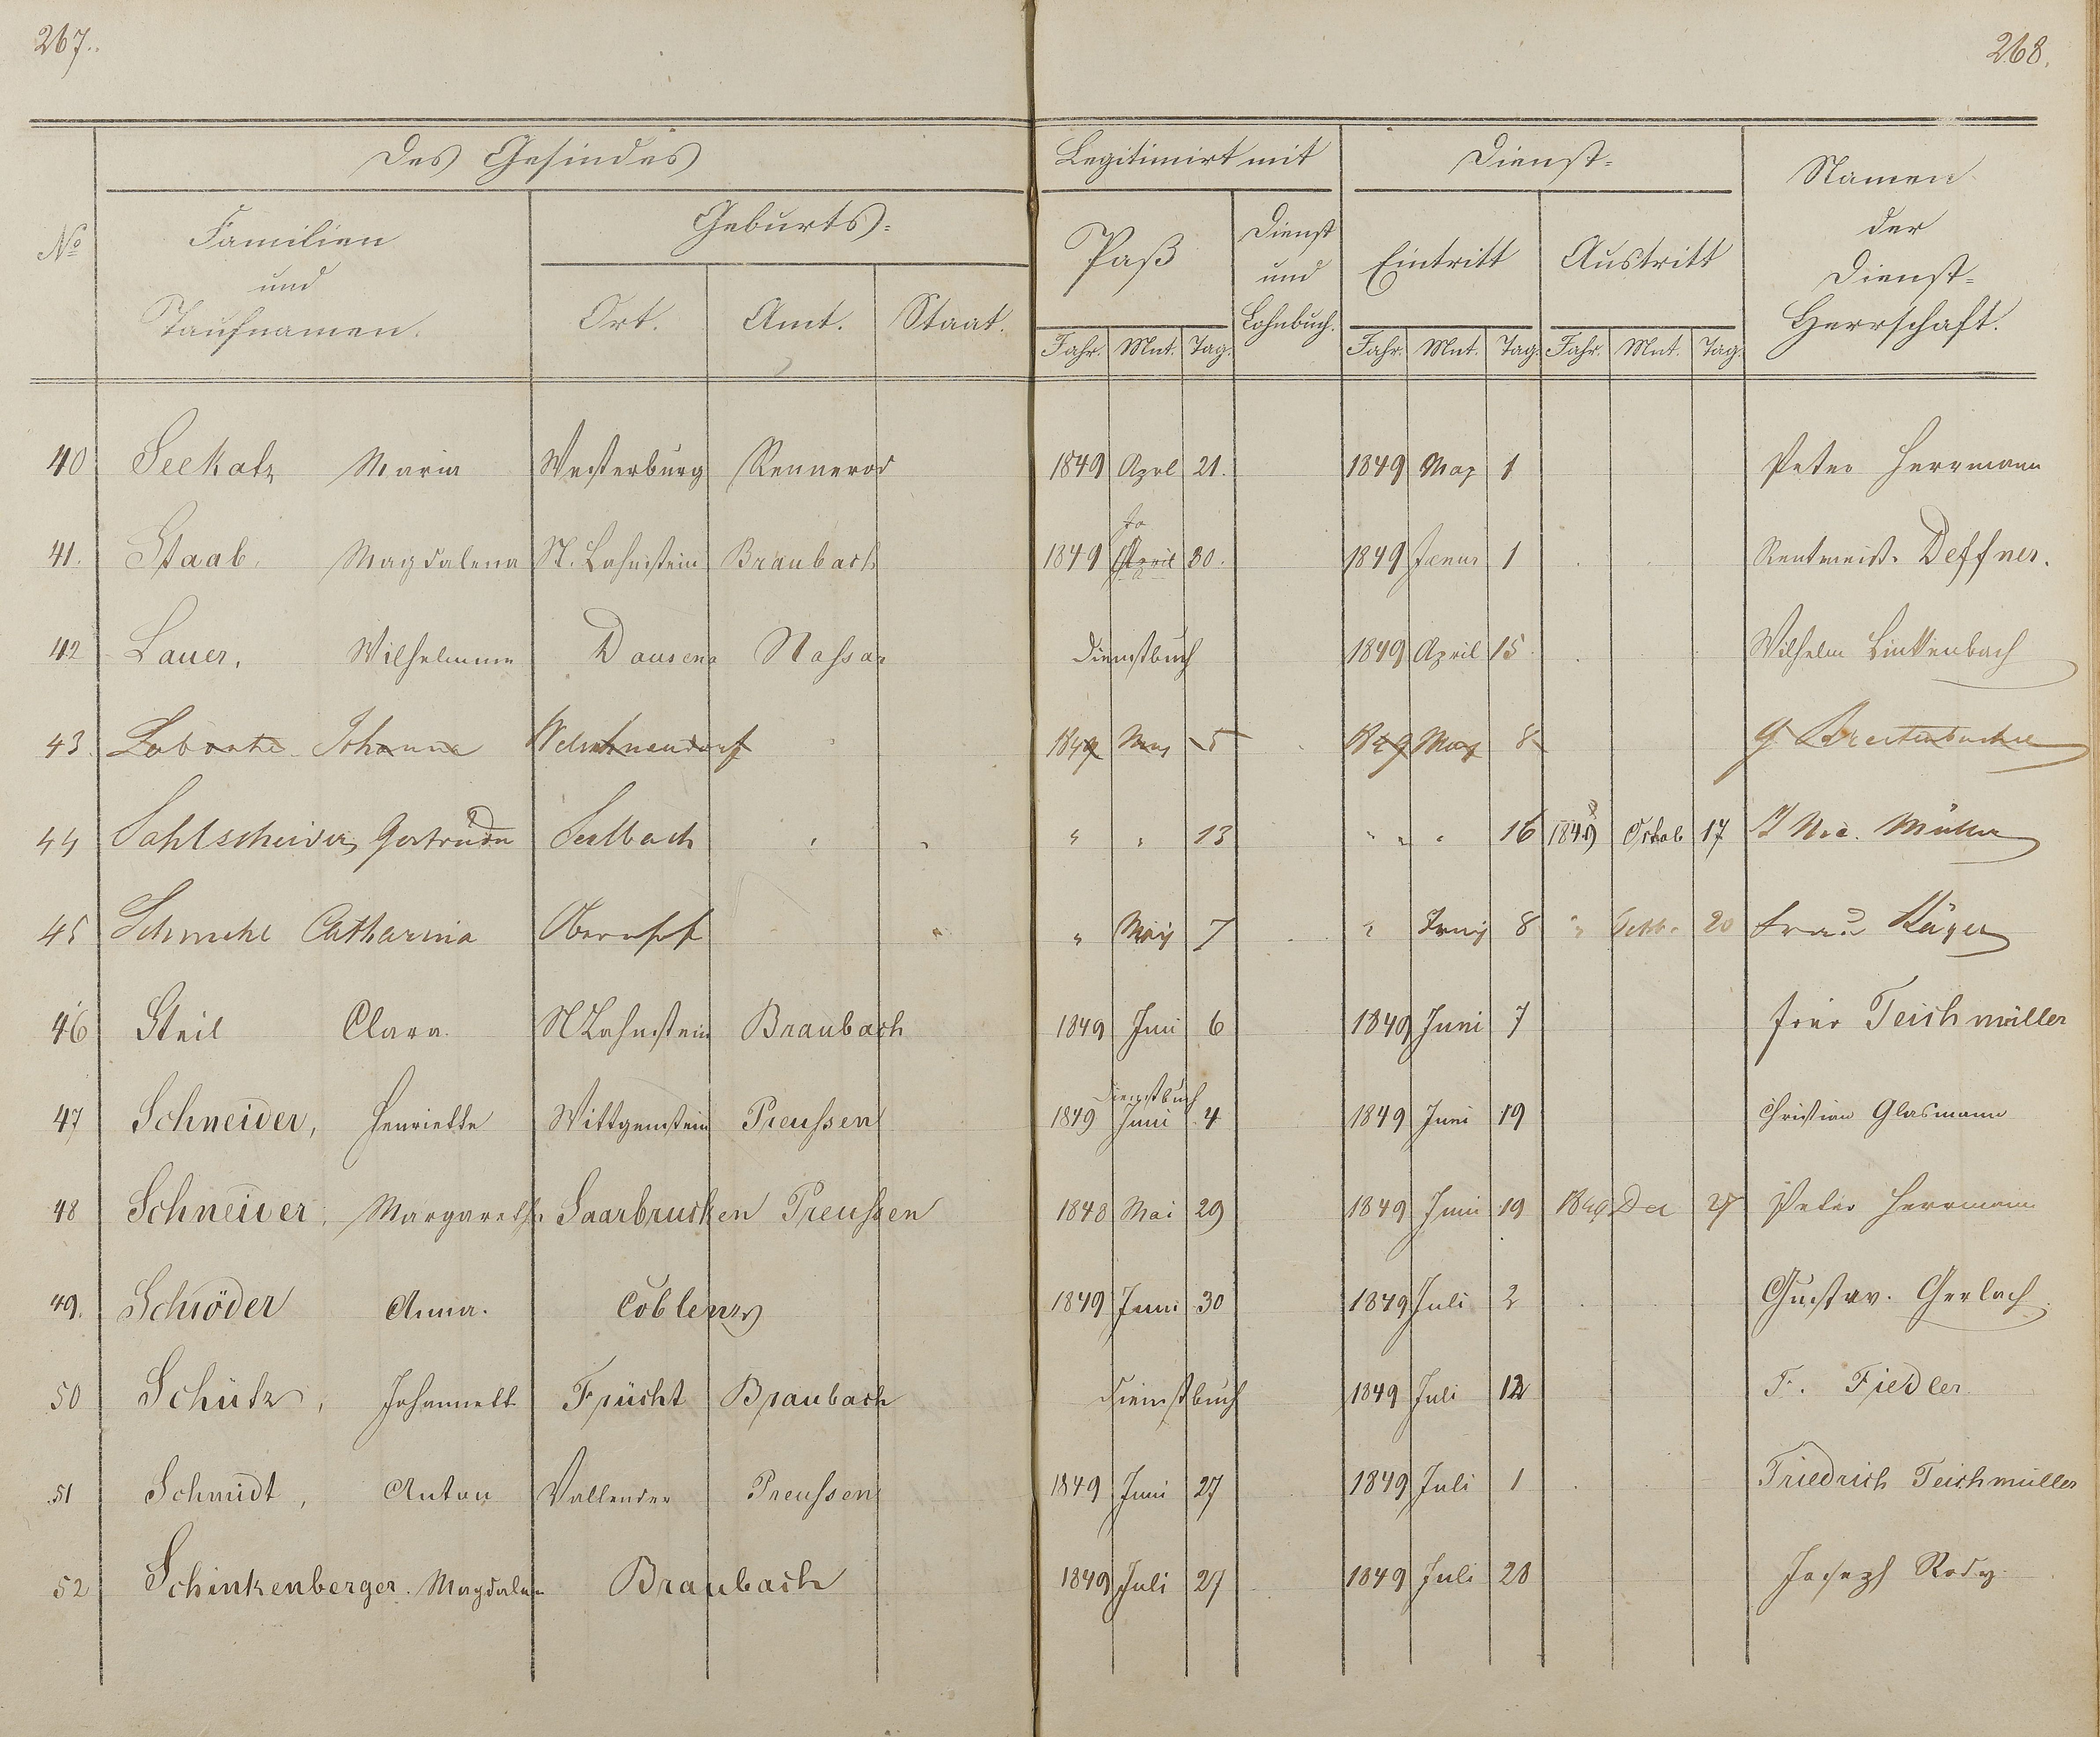 267.
268.
Des Gesindes
Legitimirt mit
Dienst-
Namen der Dienst-Herrschaft.
No
Familien und Taufnamen.
Geburts-
Paß
Dienst und Lohnbuch.
Eintritt
Austritt
Ort. Amt. Staat.
Jahr. Mnt. Tag. Jahr. Mnt. Tag. Jahr. Mnt. Tag.
40 Seekatz Maria Westerburg Rennerod 1849 Aprl 21. 1849 May 1 Peter Herrmann
41. Staab, Magdalena N. Lahnstein Braubach 1849 April 30. 1849 Janur 1 Rentmeistr Deffner.
42 Lauer, Wilhelmine Dausena Nassau Dienstbuch 1849 April 15. Wilhelm Linkenbach
43. Johanna Welschneudorf 1849 May 5 1849 May 8 G. Breitenbacher
44 Sahlscheider, Gertrude Seelbach " " 13 " " 16 1849 Octob 17 Müller
45 Catharina Obernhof " Maij 7 " Junij 8 " 20 Frau
46 Steil Clara. N Lahnstein Braubach 1849 Juni 6 1849 Juni 7 Teichmüller
47 Schneider, Henriette Wittgenstein Preussen Dienstbuch 1849 Juni 4 1849 Juni 19 Christian Glasmann
48 Schneider, Margareth. Saarbrucken Preussen 1848 Mai 29 1849 Juni 19 1849 Dec 27 Peter Herrmann
49. Schröder Anna. Coblenz 1849 Juni 30 1849 Juli 2 Gustav. Gerlach.
50 Schütz, Johannett Frücht Braubach Dienstbuch 1849 Juli 12 F. Fiedler.
51 Schmidt, Anton Vallender Preussen 1849 Juni 27 1849 Juli 1 Friedrich Teichmüller
52 Schinkenberger. Magdalen Braubach 1849 Juli 27 1849 Juli 28 Joseph Rody.